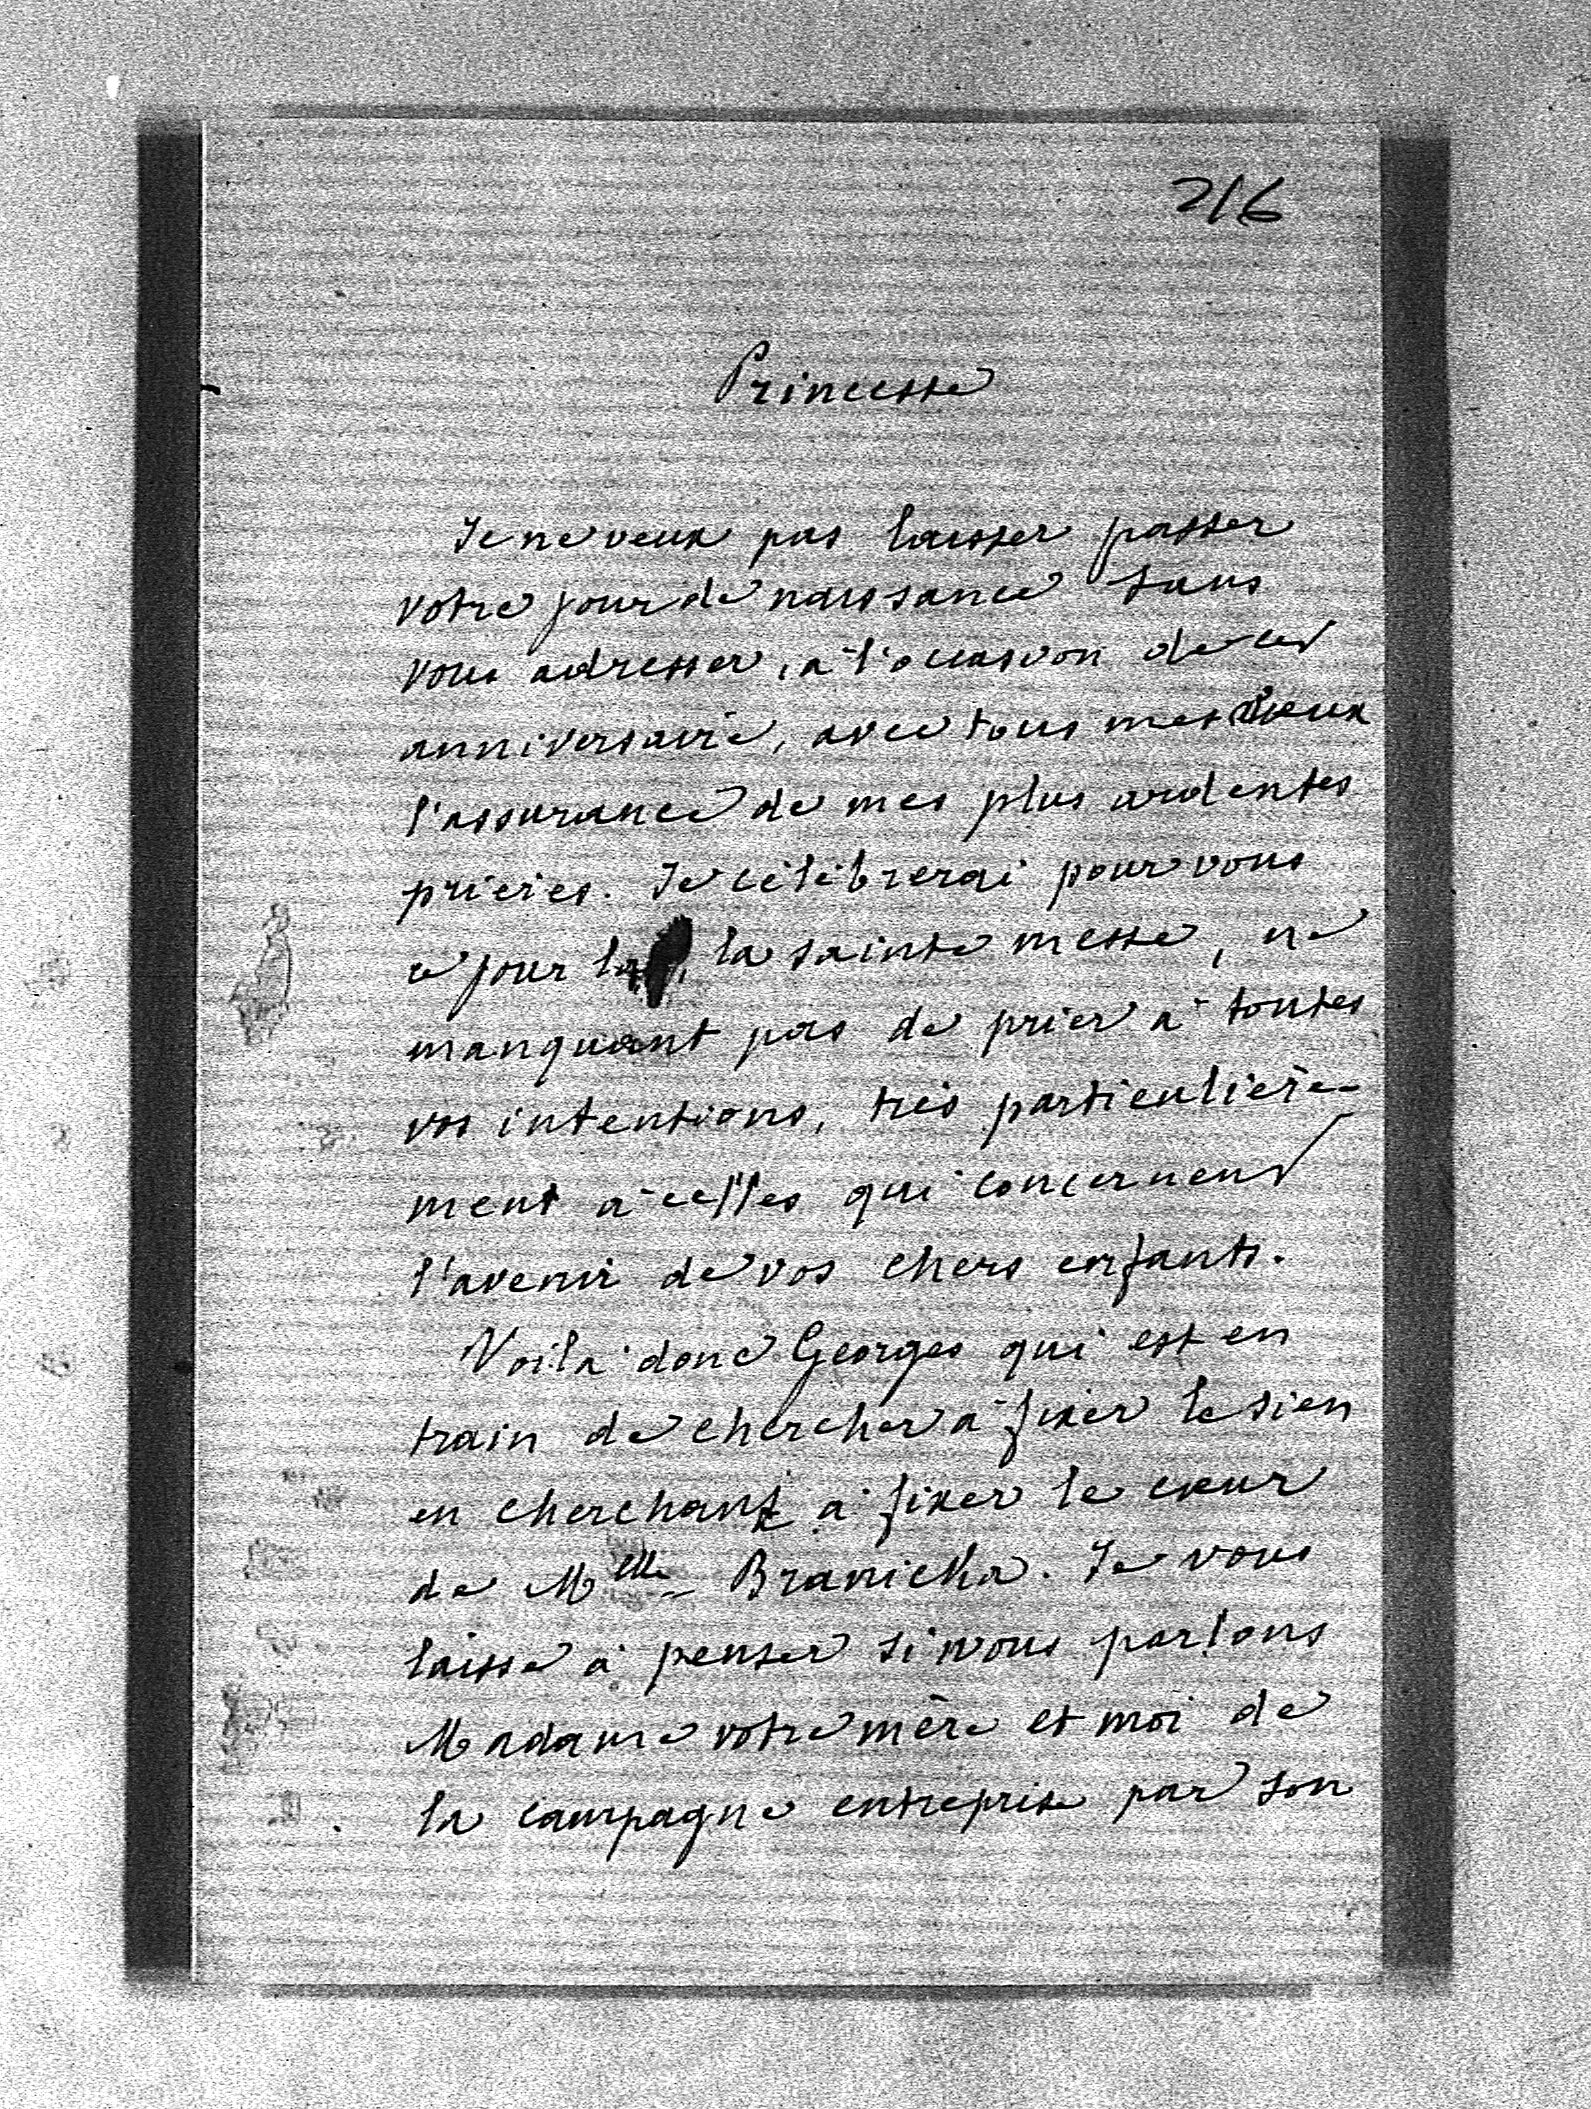 216
Princesse
Je ne veux pas laisser passer
votre jour de naissance sans
vous adresser, à l'occasion de cet
anniversaire, avec tous mes vœux
l'assurance de mes plus ardentes
prières. Je célèbrerai pour vous
ce jour là, la sainte messe, ne
manquant pas de prier à toutes
vos intentions, très particulière-
ment à celles qui concernent
l'avenir de vos chers enfants.
Voilà donc Georges qui est en
train de chercher à fixer le sien
en cherchant à fixer le cœur
de Melle Branicka. Je vous
laisse à penser si nous parlons
Madame votre mère et moi de
la campagne entreprise par son